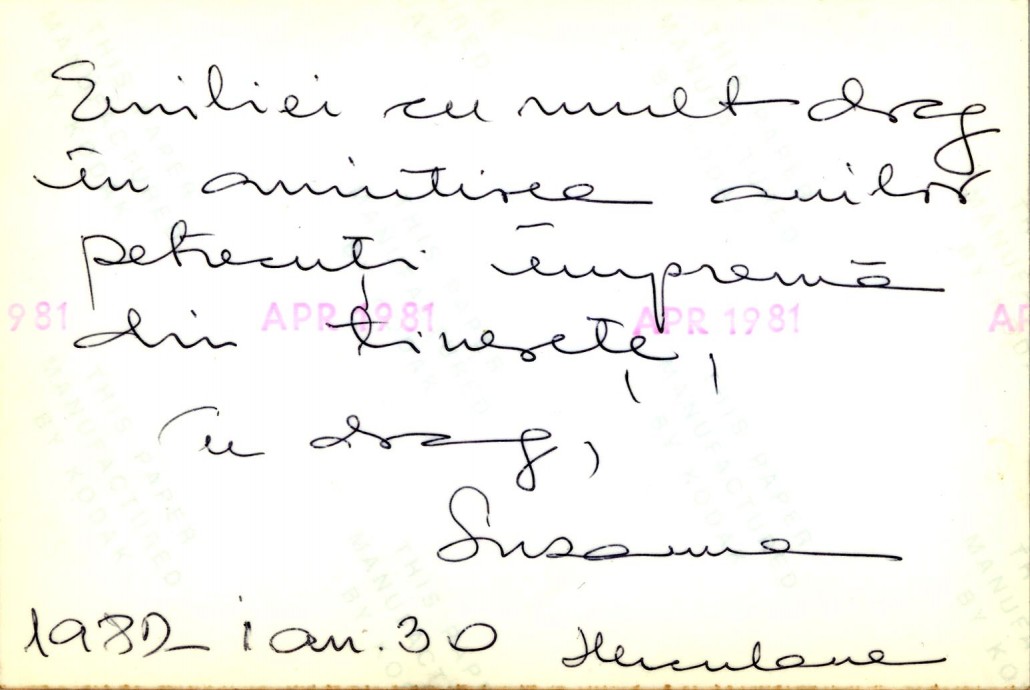 Emiliei cu mult drag
în amintirea anilor
petrecuți împreună
981 APR 1981 APR 1981 AP
din tinerețe,
Cu drag,
Susanna
1982 ian. 30 Herculane
THIS PAPER
MANUFACTURED
BY KODAK